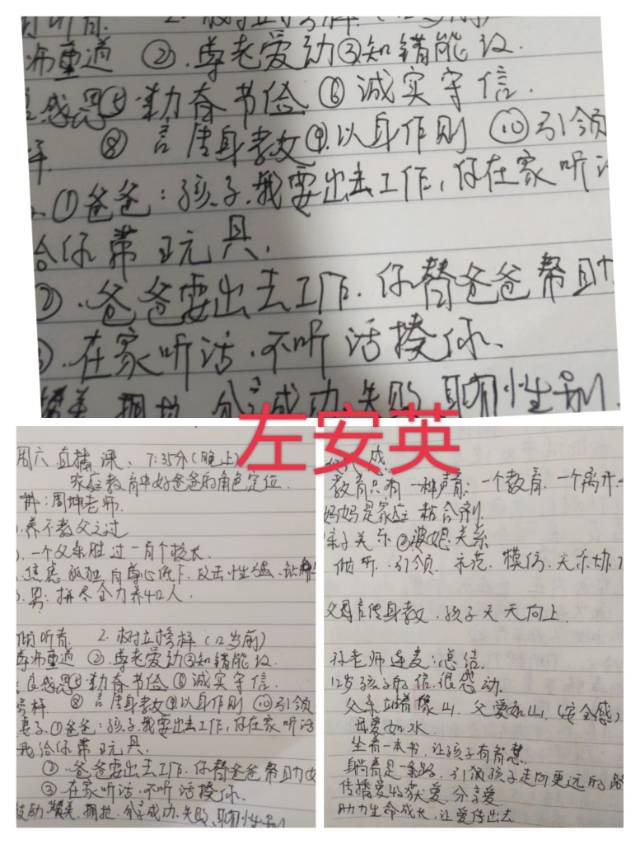 尊老爱幼③知错能改.
感恩⑤勤奋节俭⑥诚实守信.
⑧言传身教⑨以身作则⑩引领
①爸爸:孩子.我要出去工作,你在家听
给你带玩具.
②.爸爸要出去工作.你替爸爸帮助
③.在家听话.不听话揍你.
拥抱 分享成功 失败
左安英
周六直播课、7:35分(晚上)
家庭教育中好爸爸的角色定位.
讲:周坤老师.
养不教父之过
一个父亲胜过一百个校长
男:拼尽全力养家人.
倾听者 2.树立榜样(12岁前)
尊师重道②.尊老爱幼③知错能改
感恩⑤勤奋节俭⑥诚实守信
⑧言传身教⑨以身作则⑩引领
①爸爸:孩子.我要出去工作,你在家听话
我给你带玩具.
②.爸爸要出去工作.你替爸爸帮助
③在家听话.不听话揍你.
拥抱.分享成功.失败.
感
教育只有一种声音:一个教育.一个离开
妈妈是家庭粘合剂
亲子关系②
倾听.引领.示范.模仿.关系
父母言传身教.孩子天天向上
孙老师连麦:总结.
12岁孩子的信很感动.
父亲 山.父爱如山.(安全感)
母爱如水.
坐着一本书,让孩子有
躺着是一条路.引领孩子走向更远的路
传播爱的 获爱.分享爱
助力生命成长,让爱传出去